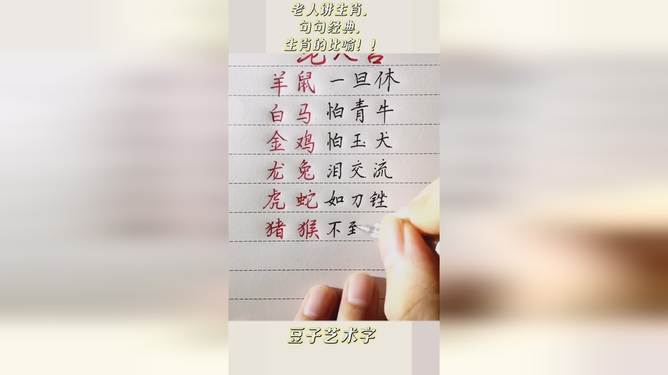 老人讲生肖.
句句经典.
生肖的比喻！！
老人言
羊鼠 一旦休
白马 怕青牛
金鸡 怕玉犬
龙兔 泪交流
虎蛇 如刀锉
猪猴 不至
豆子艺术字